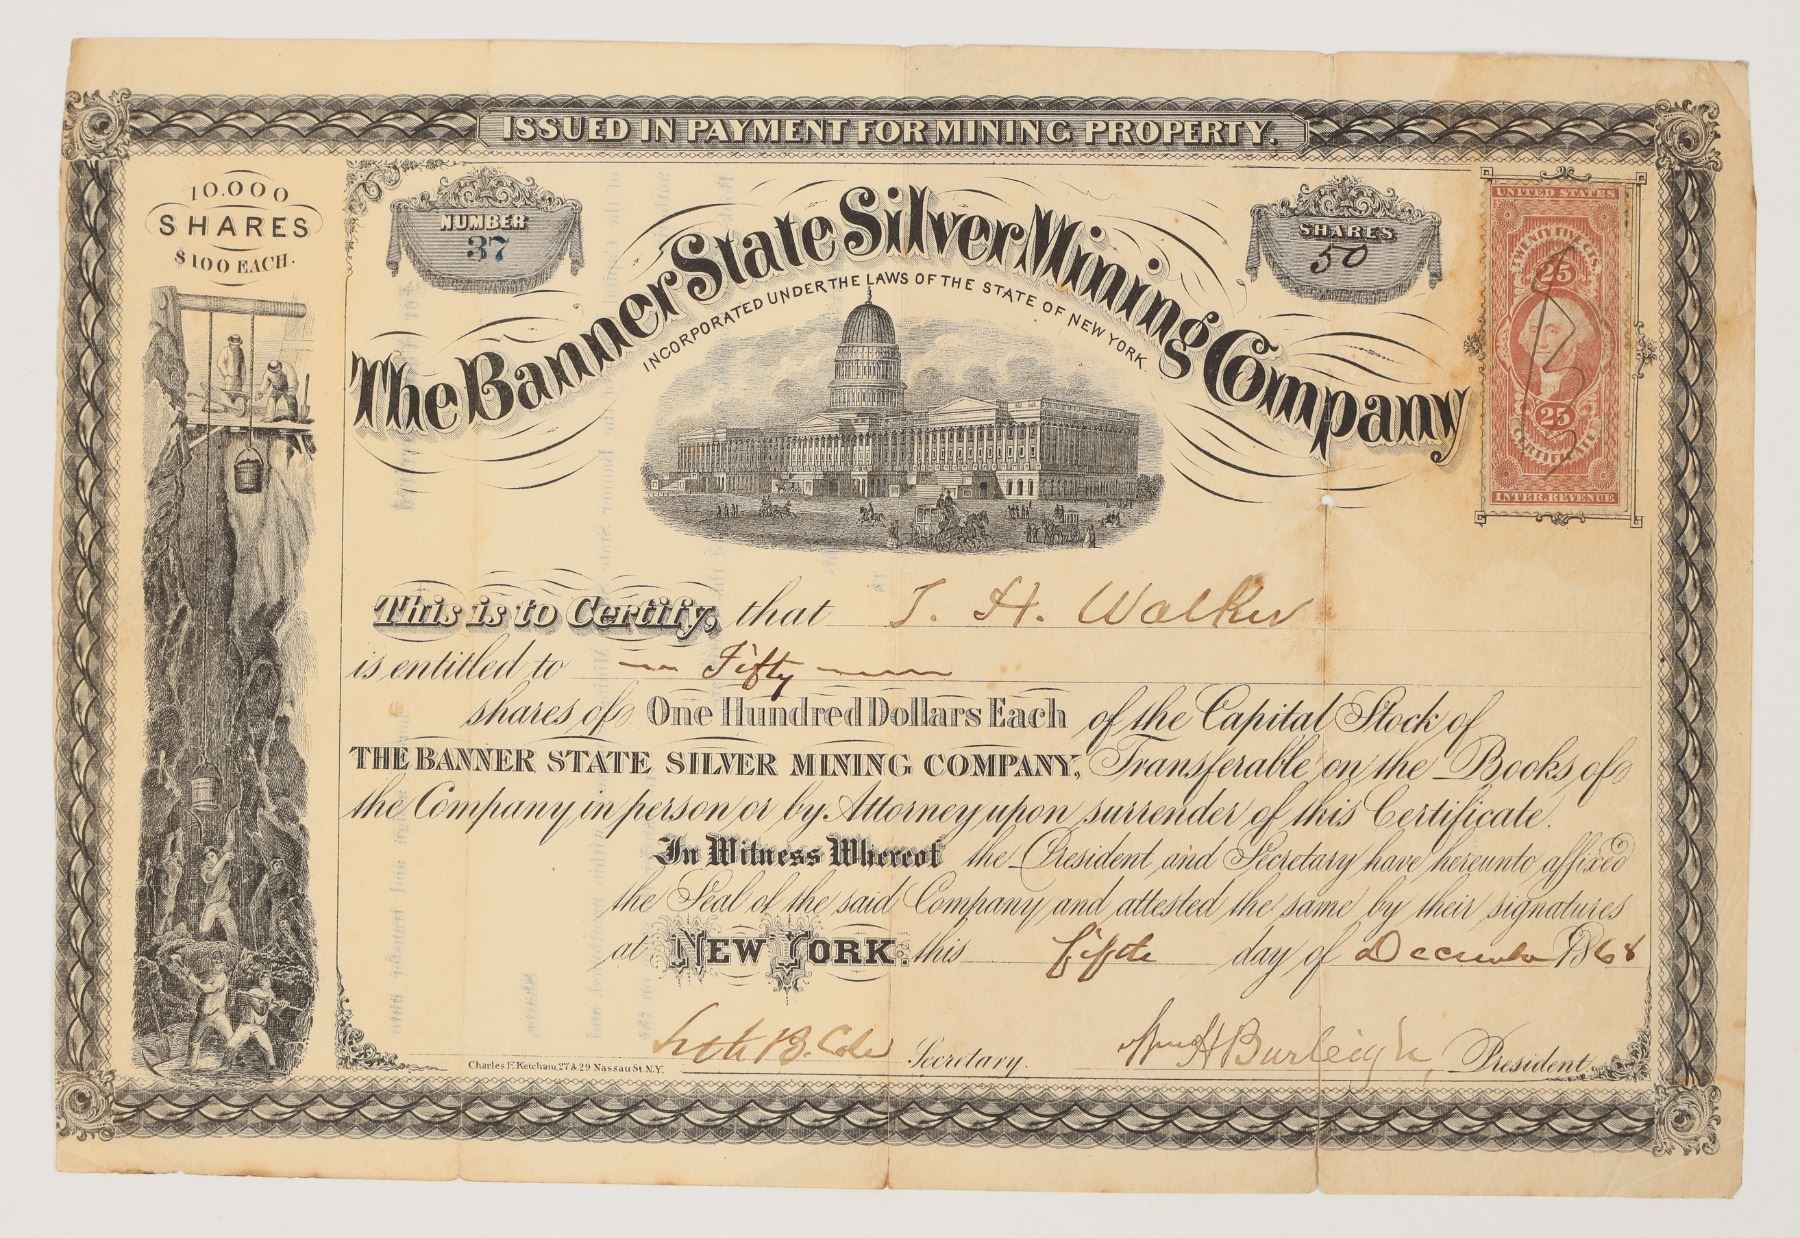 ISSUED IN PAYMENT FOR MINING PROPERTY.
10.000
SHARES
$100 EACH.
NUMBER
37
SHARES
50
The Banner State Silver Mining Company
INCORPORATED UNDER THE LAWS OF THE STATE OF NEW YORK.
UNITED STATES
TWENTY FIVE CTS.
25
25
CERTIFICATE
INTER. REVENUE
This is to Certify, that J. H. Walker
is entitled to Fifty
shares of One Hundred Dollars Each of the Capital Stock of
THE BANNER STATE SILVER MINING COMPANY, Transferable on the Books of
the Company in person or by Attorney upon surrender of this Certificate.
In Witness Whereof the President and Secretary have hereunto affixed
the Seal of the said Company and attested the same by their signatures
at NEW YORK. this fifth day of December 1868
Seth B. Cole Secretary. Wm H Burleigh, President.
Charles F. Ketcham, 27 & 29 Nassau St. N.Y.